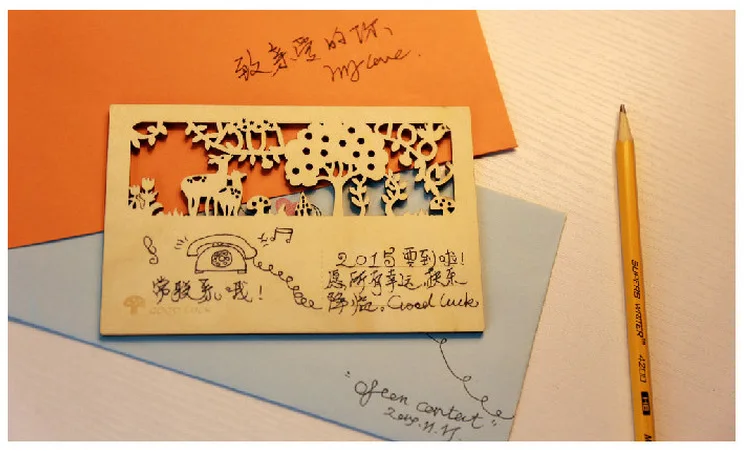 致亲爱的你、
My Love.
2015要到啦!
愿所有幸运、快乐
降临. Good Luck
常联系哦!
GOOD LUCK
"often contact"
SUPERB WRITER
4200
HB